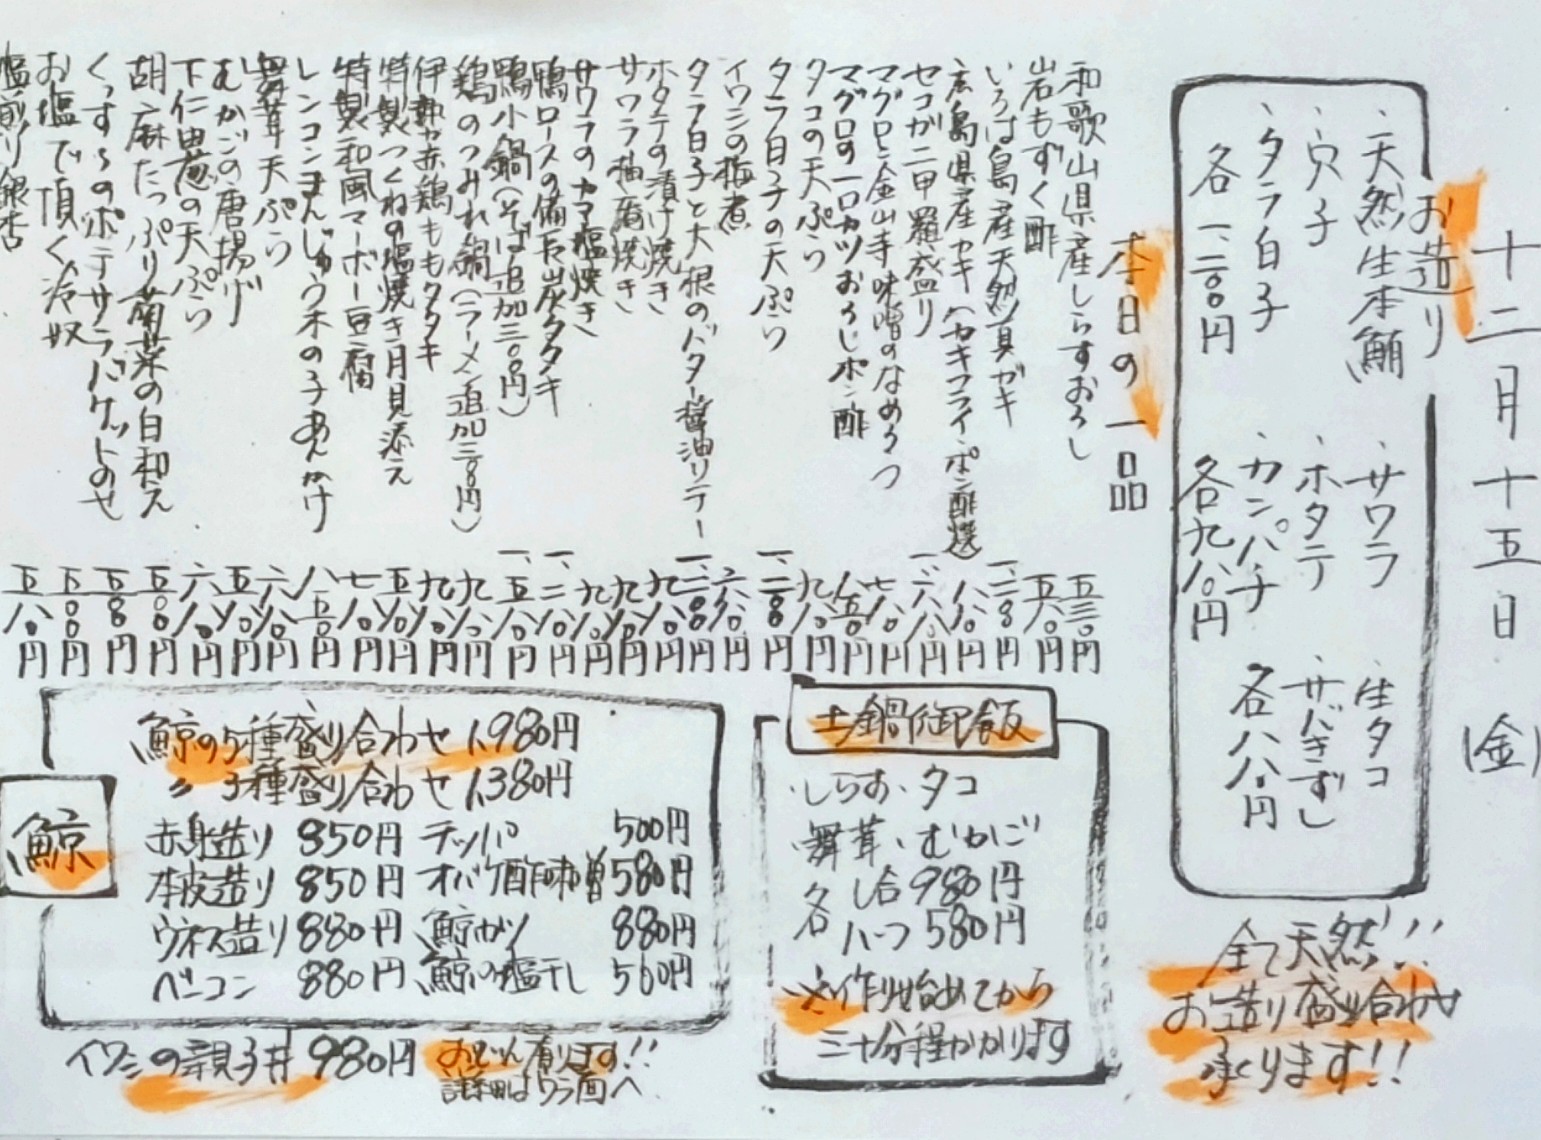 十二月十五日(金)
お造り
・天然生本鮪
・穴子
・タラ白子
各一、二〇〇円
・サワラ
・ホタテ
・カンパチ
各九八〇円
・生タコ
・サバきずし
各八八〇円
全て天然!!
お造り盛り合わせ
承ります!!
本日の一品
和歌山県産しらすおろし 五三〇円
岩もずく酢 五八〇円
いろは島産天然真ガキ
広島県産カキ(カキフライ・ポン酢)選 八八〇円
セコガニ甲羅盛り 一、六八〇円
マグロと金山寺味噌のなめろう 七八〇円
マグロの一口カツおろしポン酢 八五〇円
タコの天ぷら 九八〇円
タラ白子の天ぷら 一、二〇〇円
イワシの梅煮 六八〇円
タラ白子と大根のバター醤油ソテー 一、二〇〇円
ホタテの漬け焼き 九八〇円
サワラ柚庵焼き 九八〇円
サワラのカマ塩焼き 九八〇円
鴨ロースの備長炭タタキ 一、二八〇円
鴨小鍋(そば追加三〇〇円) 一、五八〇円
鶏のつみれ鍋(ラーメン追加三〇〇円) 九八〇円
伊勢赤鶏ももタタキ 九八〇円
特製つくねの塩焼き月見添え 五八〇円
特製和風マーボー豆腐 七八〇円
レンコンまんじゅう木の子あんかけ 八五〇円
舞茸天ぷら 六八〇円
むかごの唐揚げ 五八〇円
下仁田葱の天ぷら 六八〇円
胡麻たっぷり菊菜の白和え 五五〇円
くんすらのポテサラバケットのせ 五五〇円
お塩で頂く冷奴 五〇〇円
塩煎り銀杏 五八〇円
土鍋御飯
・しらす・タコ
・舞茸・むかご
各 一合 980円
ハーフ 580円
※作り始めてから
三十分程かかります
鯨
鯨の5種盛り合わせ 1,980円
〃 3種盛り合わせ 1,380円
赤身造り 850円 テッパ 500円
本皮造り 850円 オバケ酢味噌 580円
ウネス造り 880円 鯨カツ 880円
ベーコン 880円 鯨の塩干し 560円
イワシの親子丼 980円
おでん有ります!!
詳細はウラ面へ